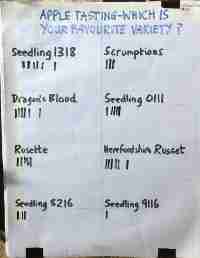 APPLE TASTING-WHICH IS
YOUR FAVOURITE VARIETY?
Seedling 1318
Scrumptions
Dragon's Blood
Seedling 0111
Rosette
Herefordshire Russet
Seedling 8216
Seedling 9116